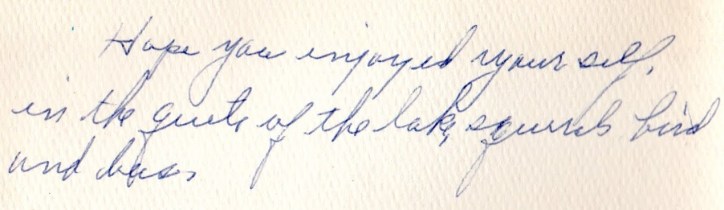 Hope you enjoyed yourself,
in the quite of the lake, squirrels bird
and bass